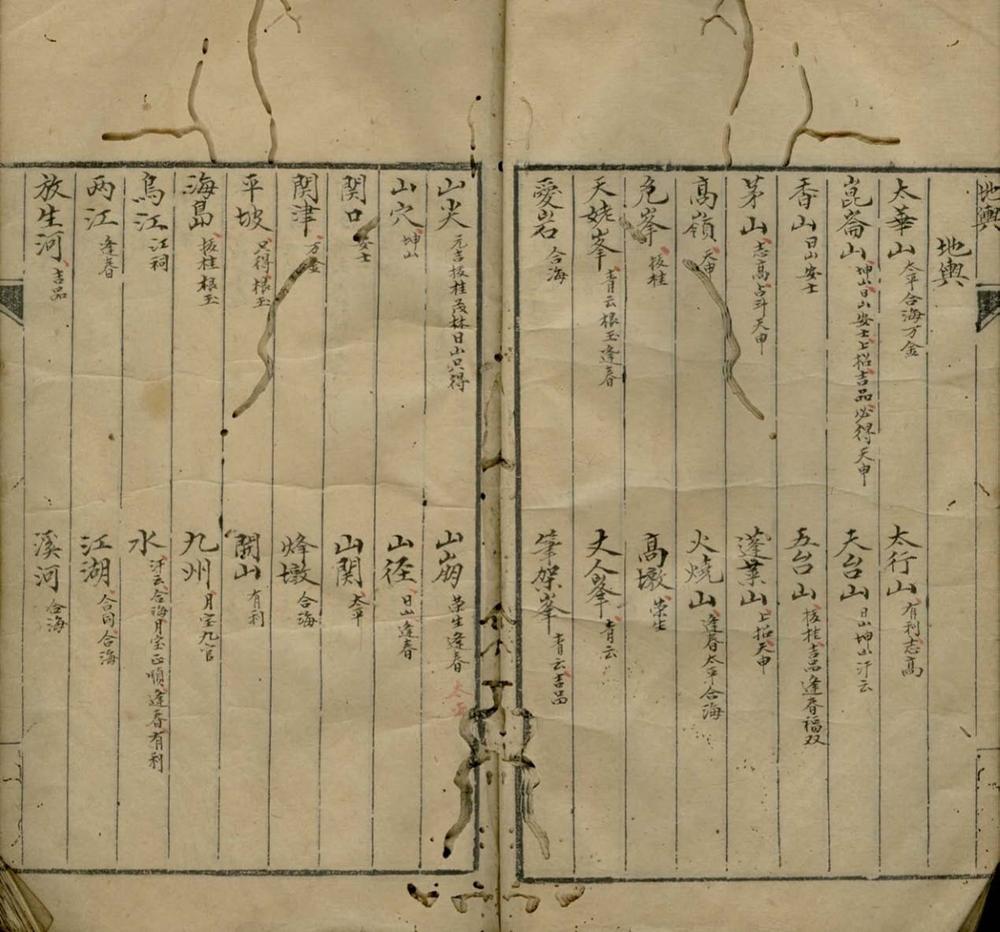 地輿
地輿
太華山 太平合海万金
太行山 有利志高
崑崙山 坤山日山安士上招吉品必得天申
天台山 日山坤山汗云
香山 日山安士
五台山 拔桂吉品逢春福双
茅山 志高占斗天申
蓬萊山 上招天申
高嶺 天申
火燒山 逢春太平合海
危峯 拔桂
高墩 荣生
天姥峯 青云根玉逢春
丈人峯 青云
愛岩 合海
筆架峯 青云吉品
山尖 元吉拔桂茂林日山只得
山崩 荣生逢春 太平
山穴 坤山
山徑 日山逢春
関口 安士
山関 太平
関津 万金
烽墩 合海
平坡 只得根玉
開山 有利
海島 拔桂根玉
九州 月宝九官
烏江 江祠
水 汗云合海月宝正順逢春有利
兩江 逢春
江湖 合同合海
放生河 吉品
溪河 合海